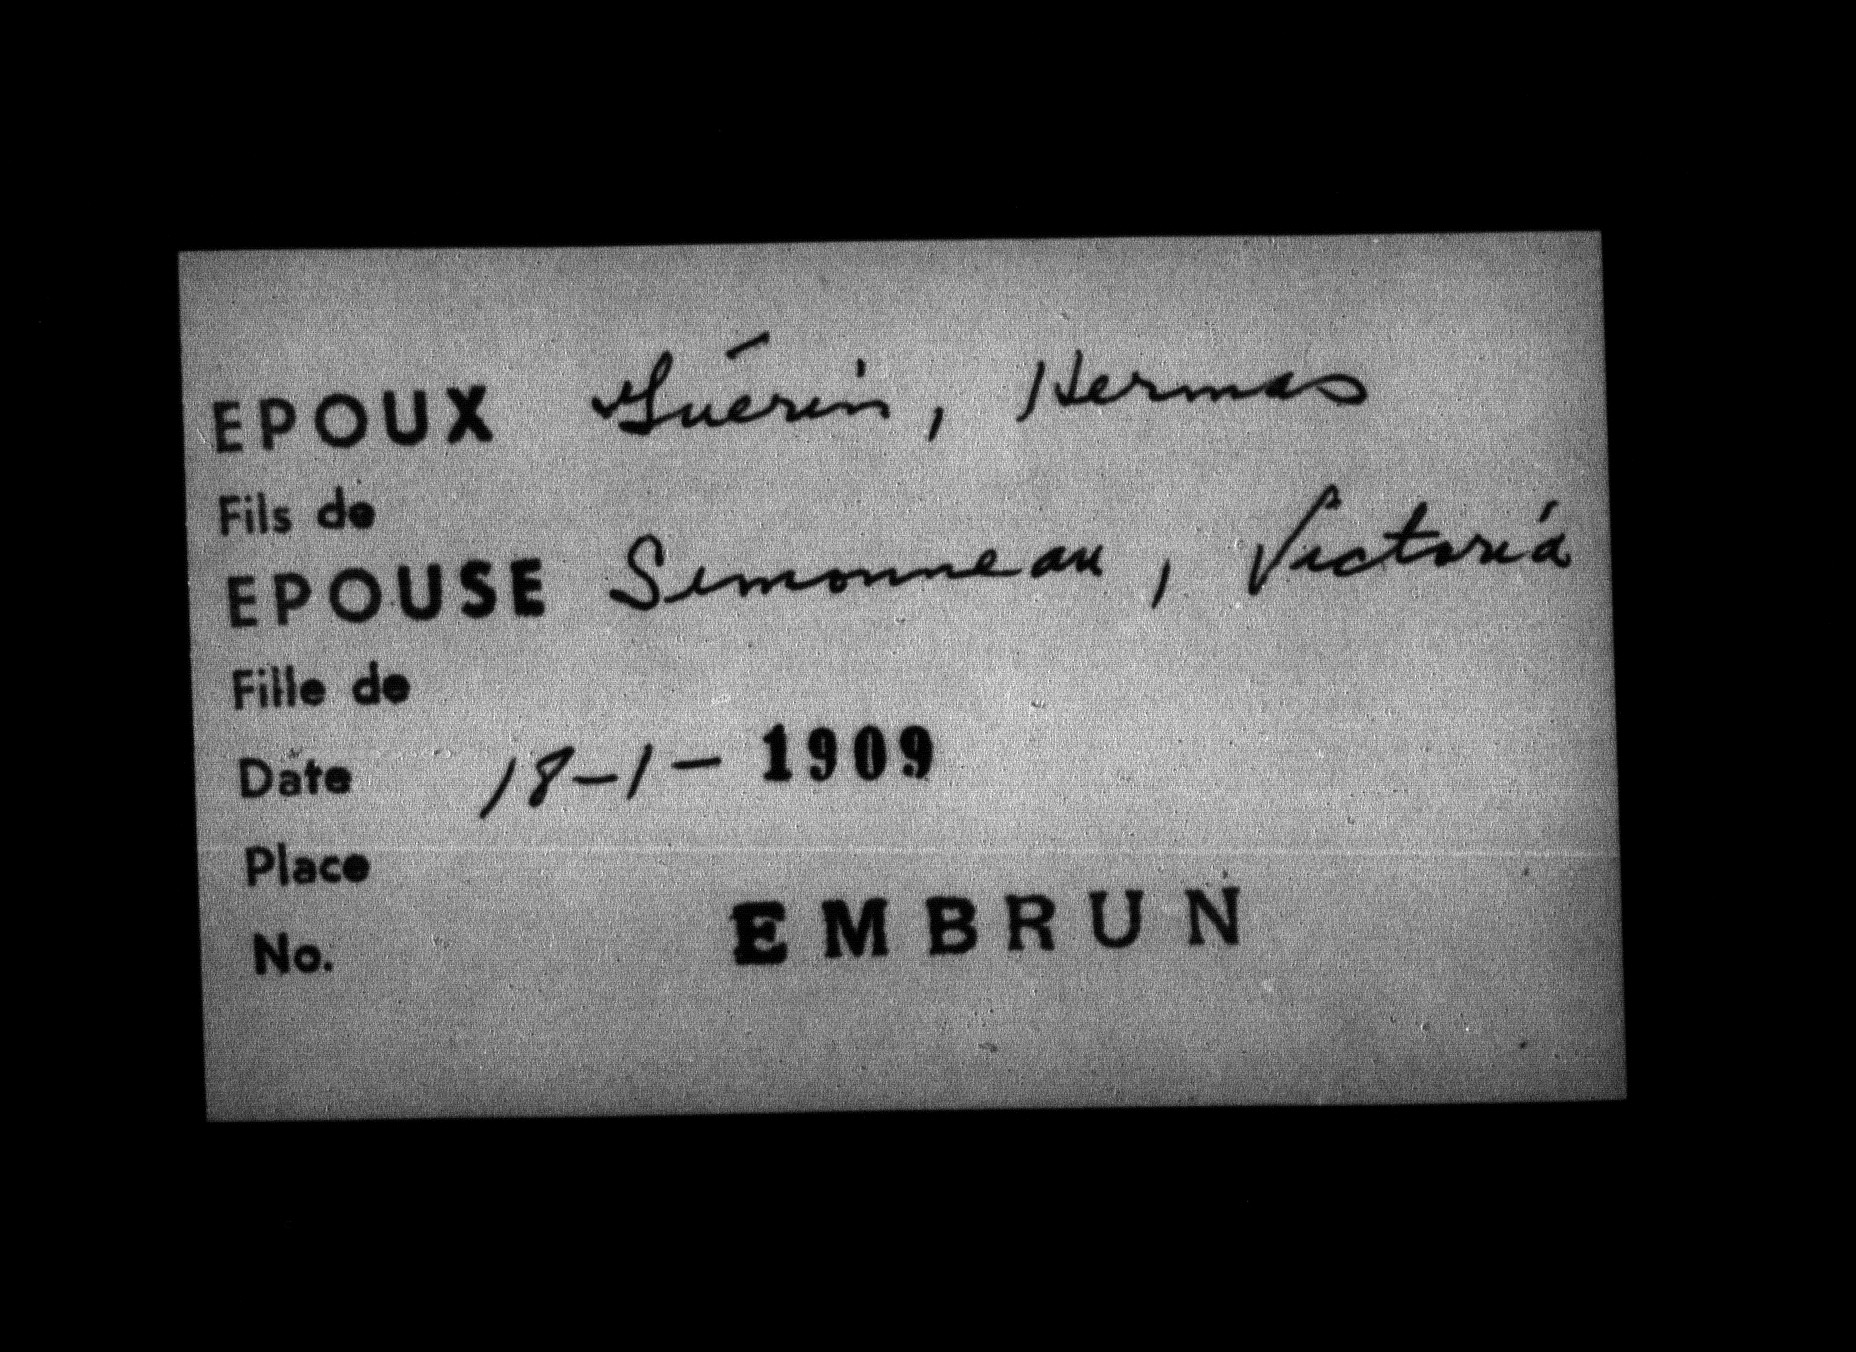 EPOUX Guérin, Hermas
Fils de
EPOUSE Simonneau, Victoria
Fille de
Date 18-1-1909
Place
EMBRUN
No.